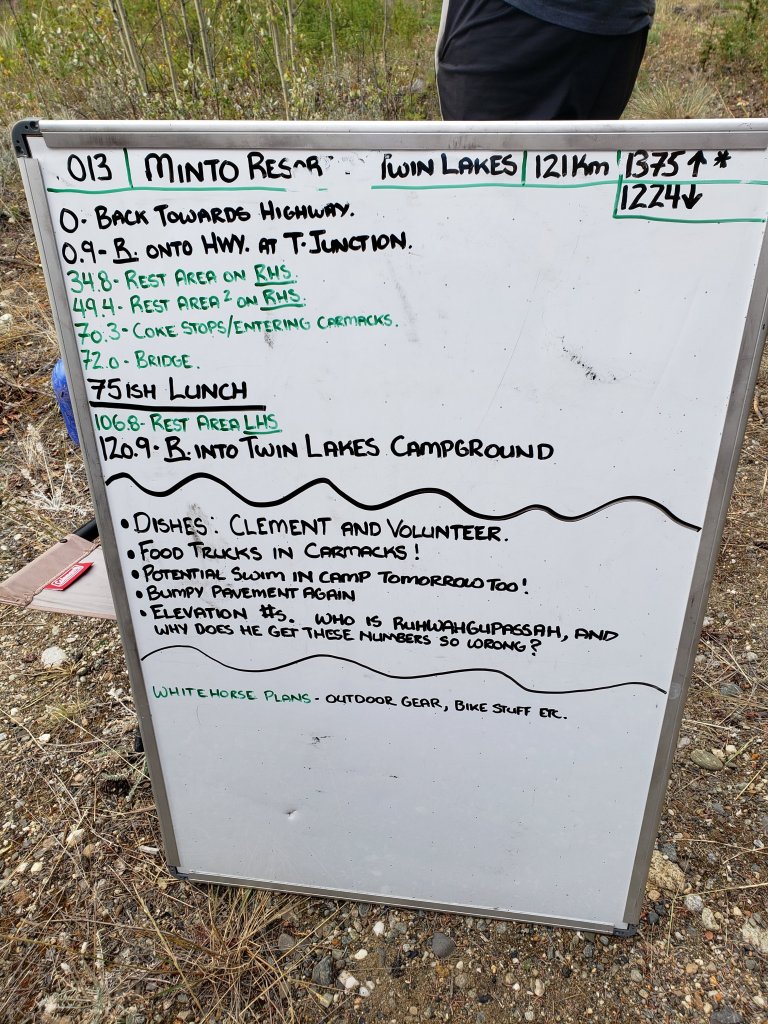 013 MINTO RESOR TWIN LAKES 121Km 1375↑*
1224↓
0- BACK TOWARDS HIGHWAY.
0.9- R. ONTO HWY. AT T-JUNCTION.
34.8- REST AREA ON RHS.
49.4- REST AREA² ON RHS.
70.3- COKE STOPS/ENTERING CARMACKS.
72.0- BRIDGE.
75ISH LUNCH
106.8- REST AREA LHS
120.9- R. INTO TWIN LAKES CAMPGROUND
• DISHES: CLEMENT AND VOLUNTEER.
• FOOD TRUCKS IN CARMACKS!
• POTENTIAL SWIM IN CAMP TOMORROW TOO!
• BUMPY PAVEMENT AGAIN
• ELEVATION #S. WHO IS RUHWAHGUPASSAH, AND
WHY DOES HE GET THESE NUMBERS SO WRONG?
WHITEHORSE PLANS - OUTDOOR GEAR, BIKE STUFF ETC.
Coleman